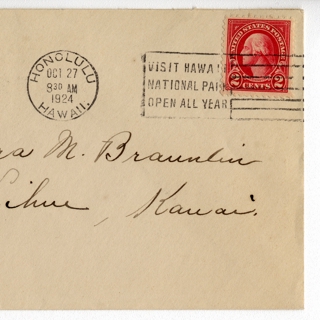 HONOLULU
OCT 27
8 30 AM
1924
HAWAII.
VISIT HAWAI
NATIONAL PARK
OPEN ALL YEAR
UNITED STATES POSTAGE
2 CENTS 2
ra M. Braunlin
Lihue, Kauai.